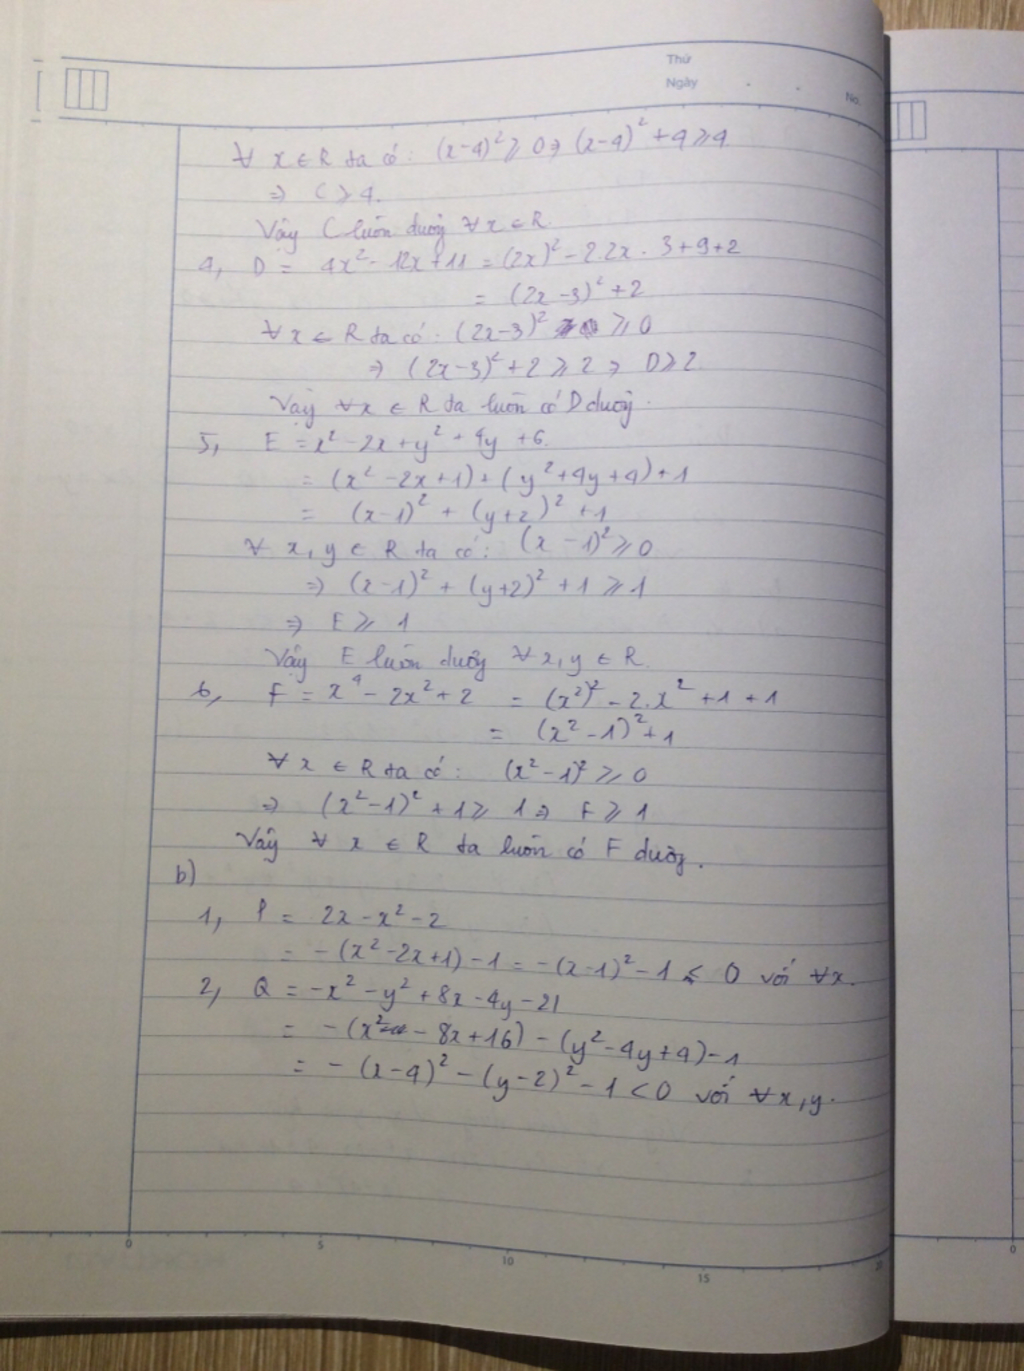 Thứ
Ngày
No.
∀ x ∈ R ta có: (x-4)² ≥ 0 ⇒ (x-4)² + 4 ≥ 4
⇒ C ≥ 4.
Vậy C luôn dương ∀x ∈ R
4, D = 4x² - 12x + 11 = (2x)² - 2.2x . 3 + 9 + 2
= (2x - 3)² + 2
∀x ∈ R ta có: (2x-3)² ≥ 0
⇒ (2x-3)² + 2 ≥ 2 ⇒ D ≥ 2
Vậy ∀x ∈ R ta luôn có D dương.
5, E = x² - 2x + y² + 4y + 6.
= (x² - 2x + 1) + (y² + 4y + 4) + 1
= (x-1)² + (y+2)² + 1
∀ x, y ∈ R ta có: (x - 1)² ≥ 0
⇒ (x-1)² + (y+2)² + 1 ≥ 1
⇒ E ≥ 1
Vậy E luôn dương ∀x, y ∈ R.
6, F = x⁴ - 2x² + 2 = (x²)² - 2.x² + 1 + 1
= (x² - 1)² + 1
∀ x ∈ R ta có: (x² - 1)² ≥ 0
⇒ (x² - 1)² + 1 ≥ 1 ⇒ F ≥ 1
Vậy ∀ x ∈ R ta luôn có F dương.
b)
1, P = 2x - x² - 2
= -(x² - 2x + 1) - 1 = -(x-1)² - 1 < 0 với ∀x.
2, Q = -x² - y² + 8x - 4y - 21
= -(x² - 8x + 16) - (y² - 4y + 4) - 1
= -(x-4)² - (y-2)² - 1 < 0 với ∀x, y.
0 5 10 15 20
0